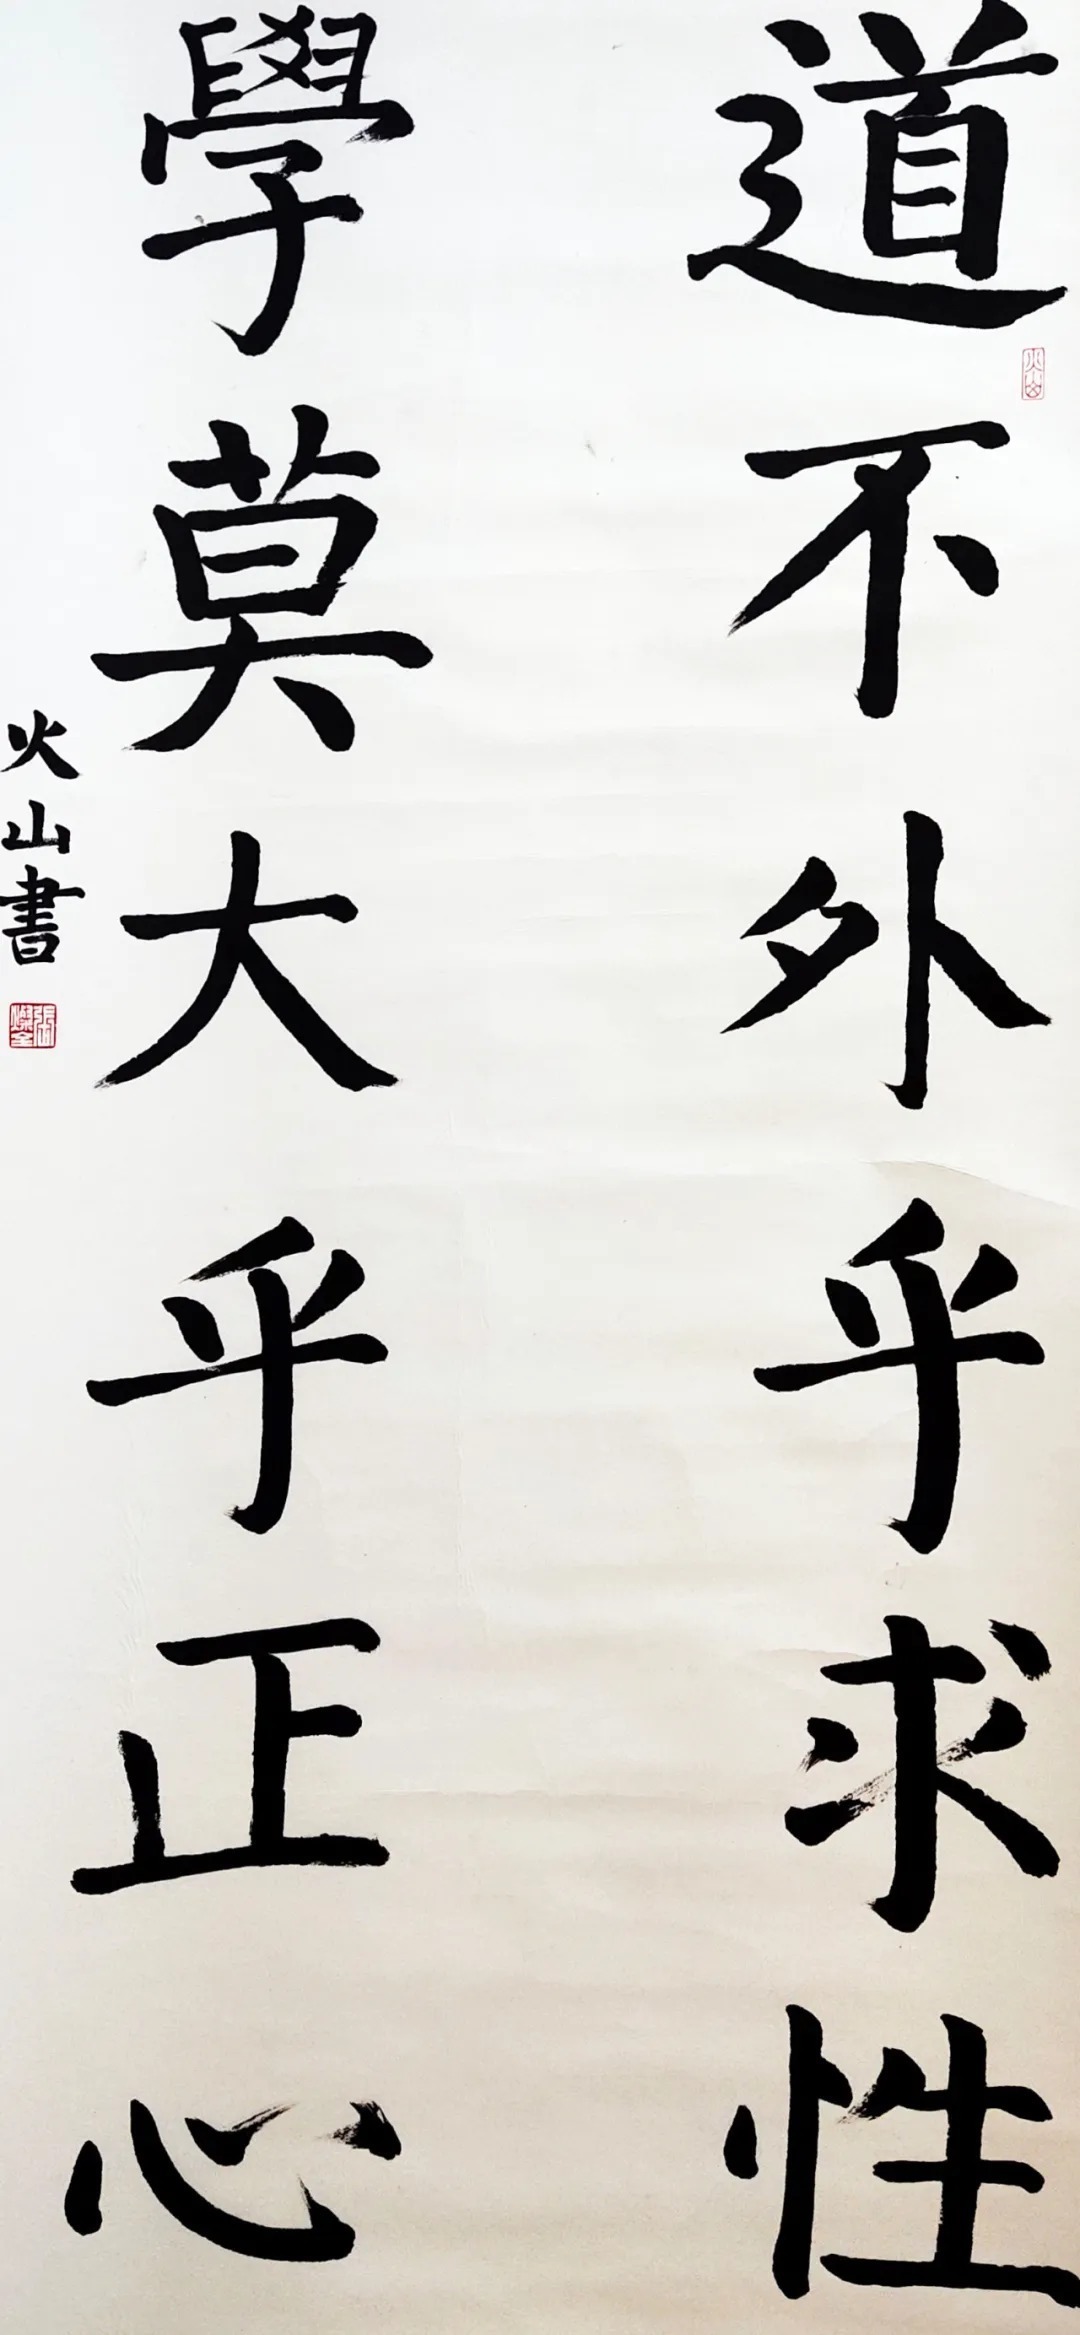 道不外乎求性
火山
學莫大乎正心
火山書